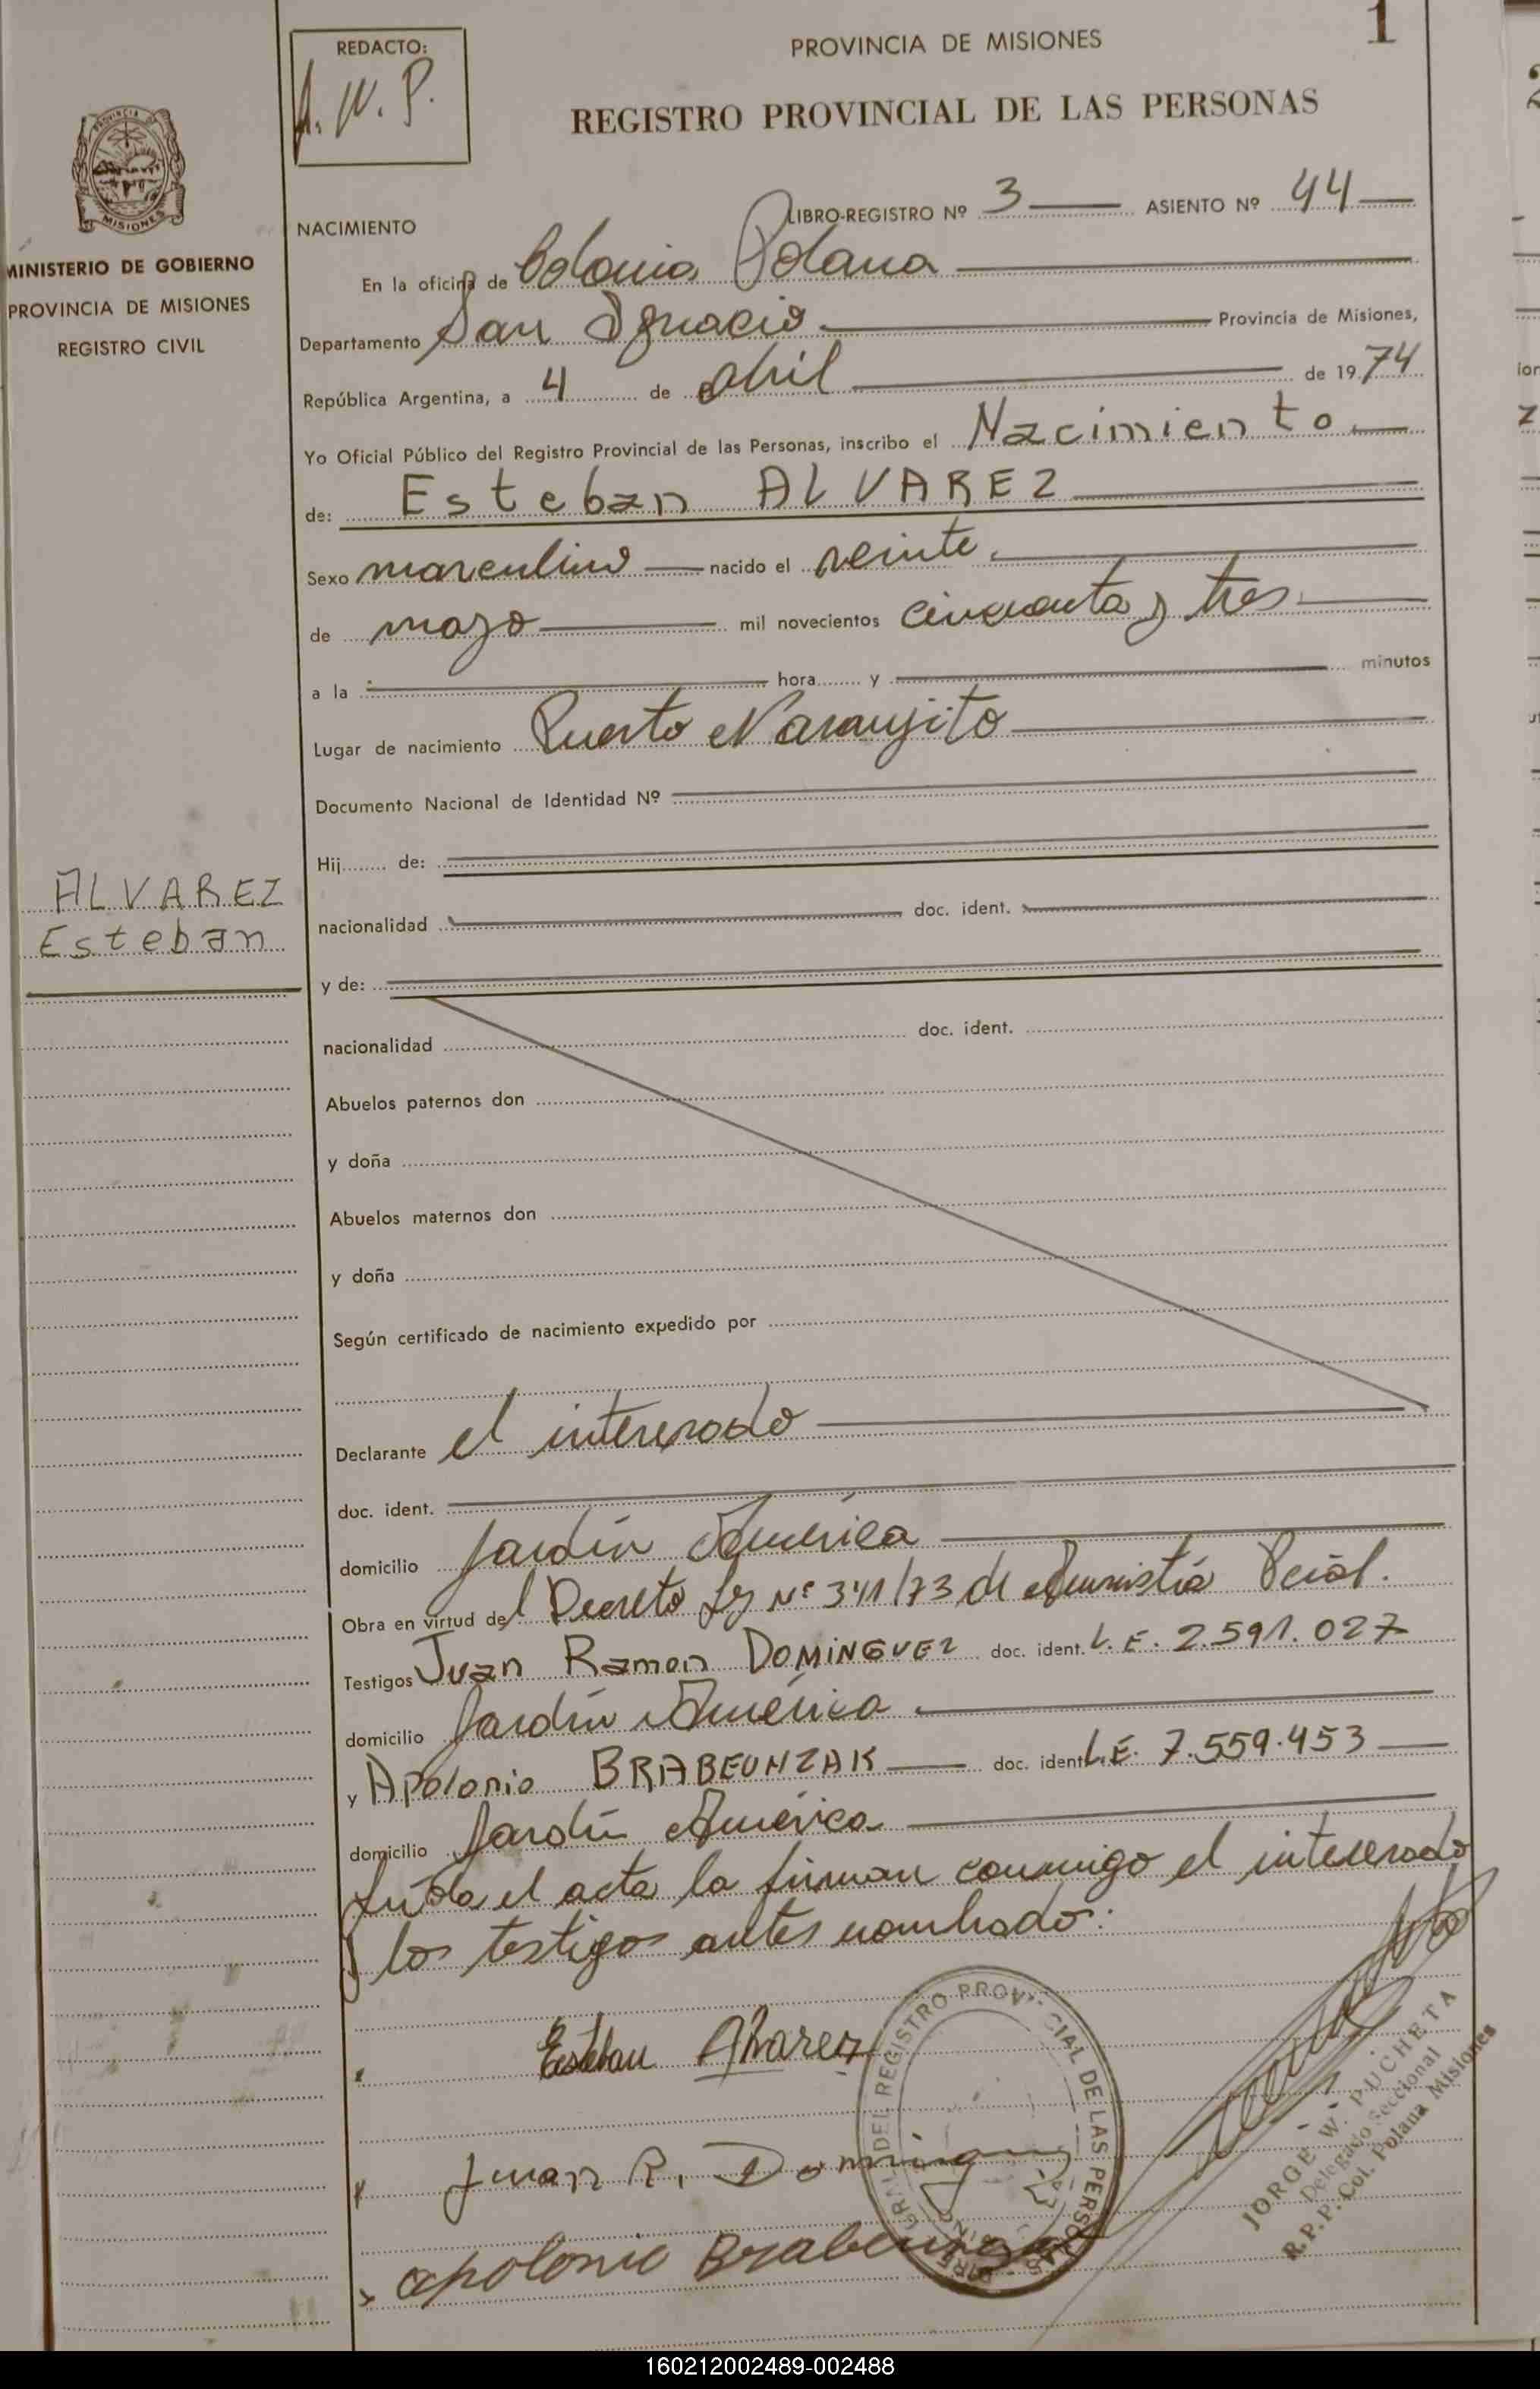 1
REDACTO:
A. W. P.
PROVINCIA DE MISIONES
REGISTRO PROVINCIAL DE LAS PERSONAS
PROVINCIA D
MISIONES
MINISTERIO DE GOBIERNO
PROVINCIA DE MISIONES
REGISTRO CIVIL
NACIMIENTO
LIBRO-REGISTRO Nº 3 ASIENTO Nº 44
En la oficina de Colonia Polana
Departamento San Ignacio Provincia de Misiones,
República Argentina, a 4 de abril de 1974
Yo Oficial Público del Registro Provincial de las Personas, inscribo el Nacimiento
de: Esteban ALVAREZ
Sexo masculino nacido el veinte
de mayo mil novecientos cincuenta y tres
a la hora y minutos
Lugar de nacimiento Puerto Naranjito
Documento Nacional de Identidad Nº
Hij de:
ALVAREZ
Esteban
nacionalidad doc. ident.
y de:
nacionalidad doc. ident.
Abuelos paternos don
y doña
Abuelos maternos don
y doña
Según certificado de nacimiento expedido por
Declarante el interesado
doc. ident.
domicilio Jardín América
Obra en virtud del Decreto Ley Nº 341/73 de Amnistía
Testigos Juan Ramon DOMINGUEZ doc. ident. L. E. 2.591.027
domicilio Jardín América
y Apolonio BRABEUNZAK doc. ident. L.E. 7.559.453
domicilio Jardín América
el acta la firman conmigo el interesado
y los testigos antes nombrado:
Esteban Alvarez
Juan R. Doming
apolonio
DEL REGISTRO PROVINCIAL DE LAS PERSONAS
JORGE W. PUCHETA
Delegado Seccional
R.P.P. Col. Polana Misiones
160212002489-002488